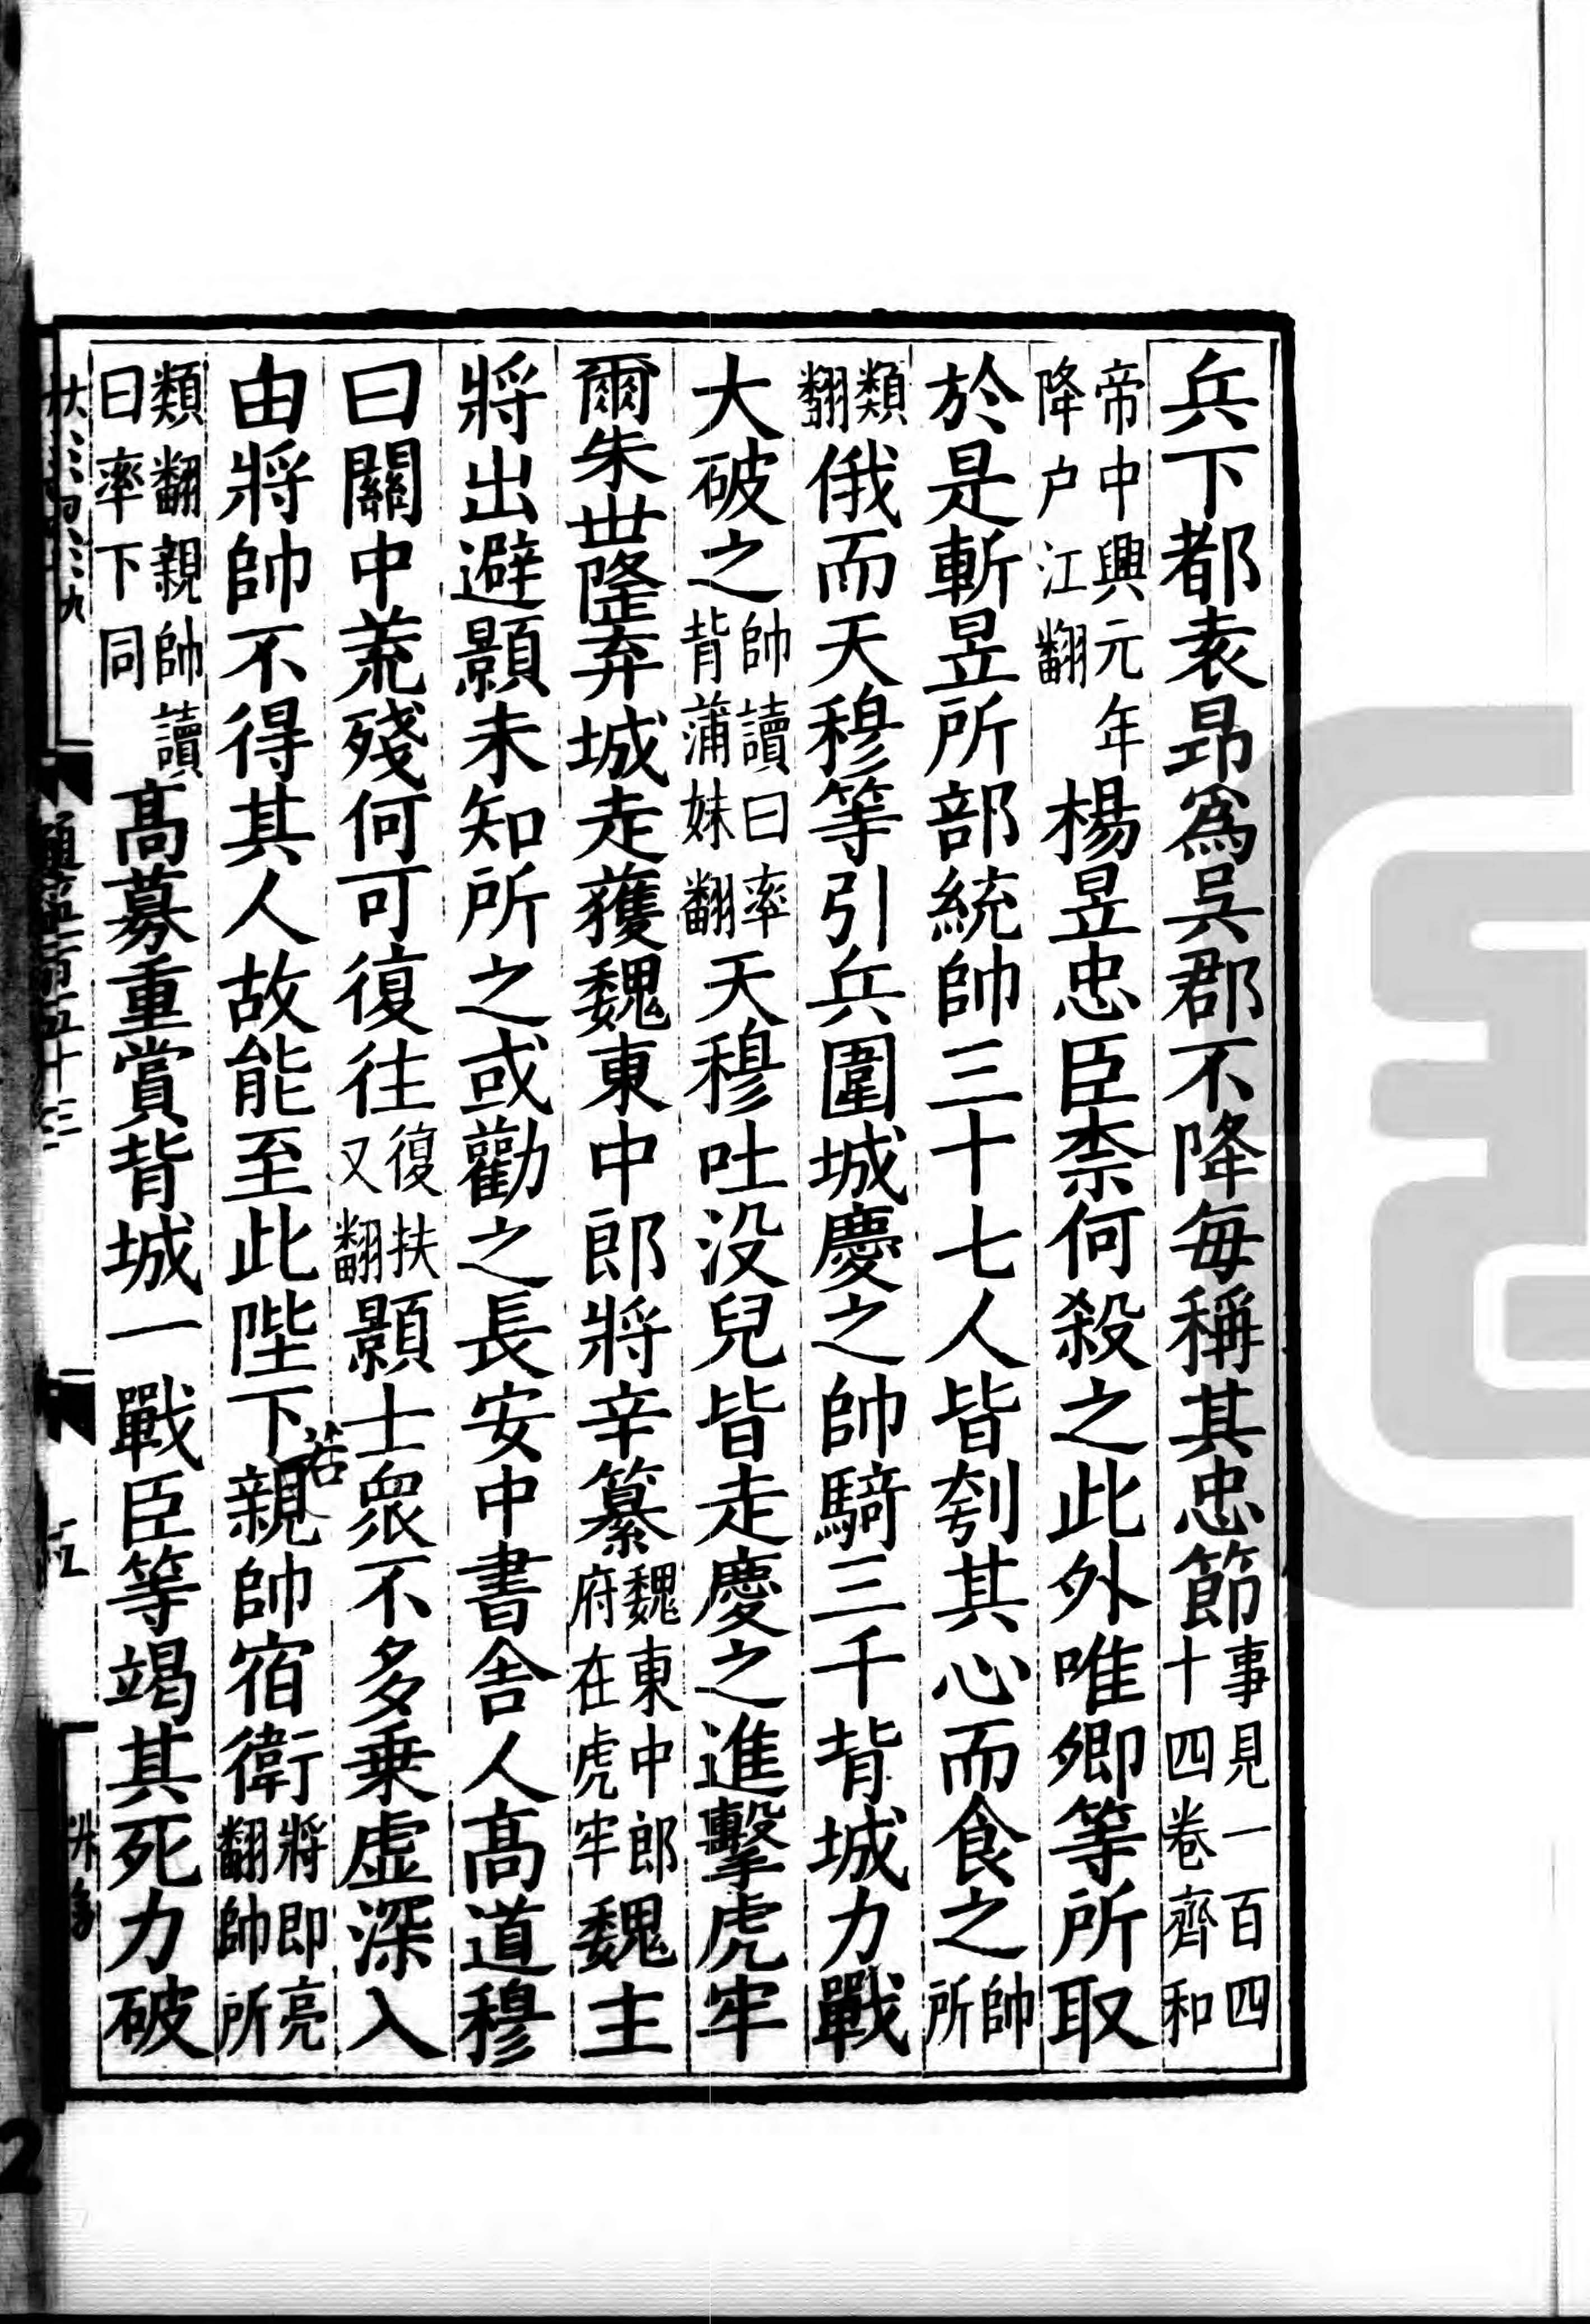 兵下都袁昂爲吳郡不降每稱其忠節事見一百四十四卷齊和
帝中興元年降户江翻楊昱忠臣柰何殺之此外唯卿等所取
於是斬昱所部統帥三十七人皆刳其心而食之帥所
類翻俄而天穆等引兵圍城慶之帥騎三千背城力戰
大破之帥讀曰率背蒲妹翻天穆吐没兒皆走慶之進擊虎牢
爾朱世隆弃城走獲魏東中郎將辛纂魏東中郎府在虎牢魏主
將出避顥未知所之或勸之長安中書舍人高道穆
曰關中荒殘何可復往復扶又翻顥士衆不多乗虚深入
由將帥不得其人故能至此陛下若親帥宿衛將即亮翻帥所
類翻親帥讀曰率下同高募重賞背城一戰臣等竭其死力破